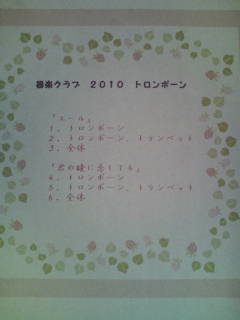 器楽クラブ　2010　トロンボーン
「エール」
1、トロンボーン
2、トロンボーン、トランペット
3、全体
「君の瞳に恋してる」
4、トロンボーン
5、トロンボーン、トランペット
6、全体